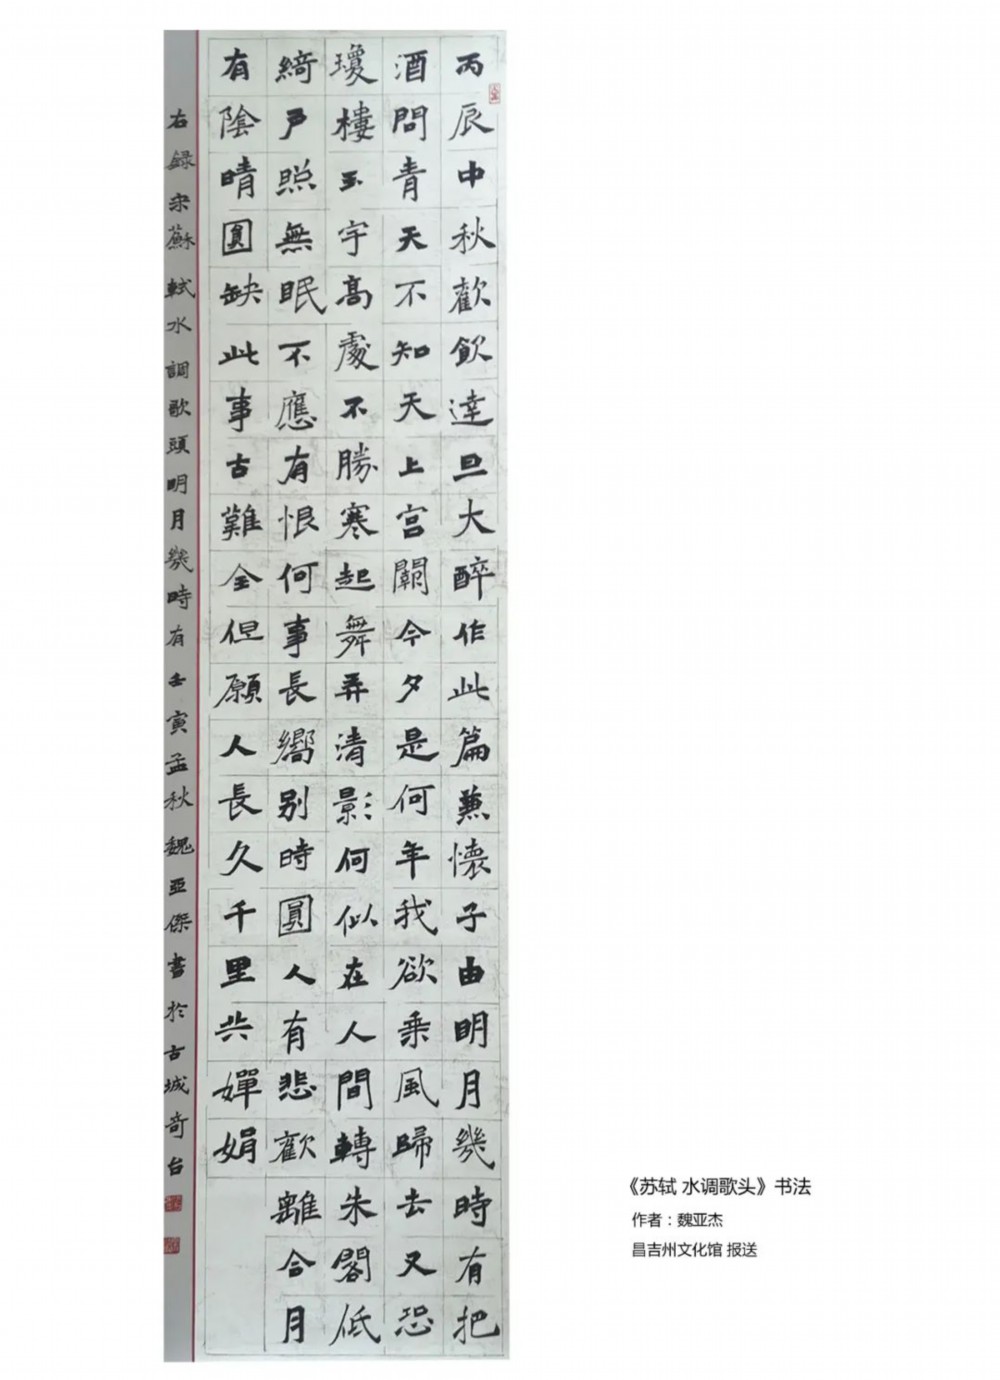 丙辰中秋歡飲達旦大醉作此篇兼懷子由明月幾時有把
酒問青天不知天上宫闕今夕是何年我欲乘風歸去又恐
瓊樓玉宇高處不勝寒起舞弄清影何似在人間轉朱閣低
綺户照無眠不應有恨何事長嚮别時圓人有悲歡離合月
有陰晴圓缺此事古難全但願人長久千里共嬋娟
右録宋蘇軾水調歌頭明月幾時有壬寅孟秋魏亞傑書於古城奇台
《苏轼 水调歌头》书法
作者：魏亚杰
昌吉州文化馆 报送